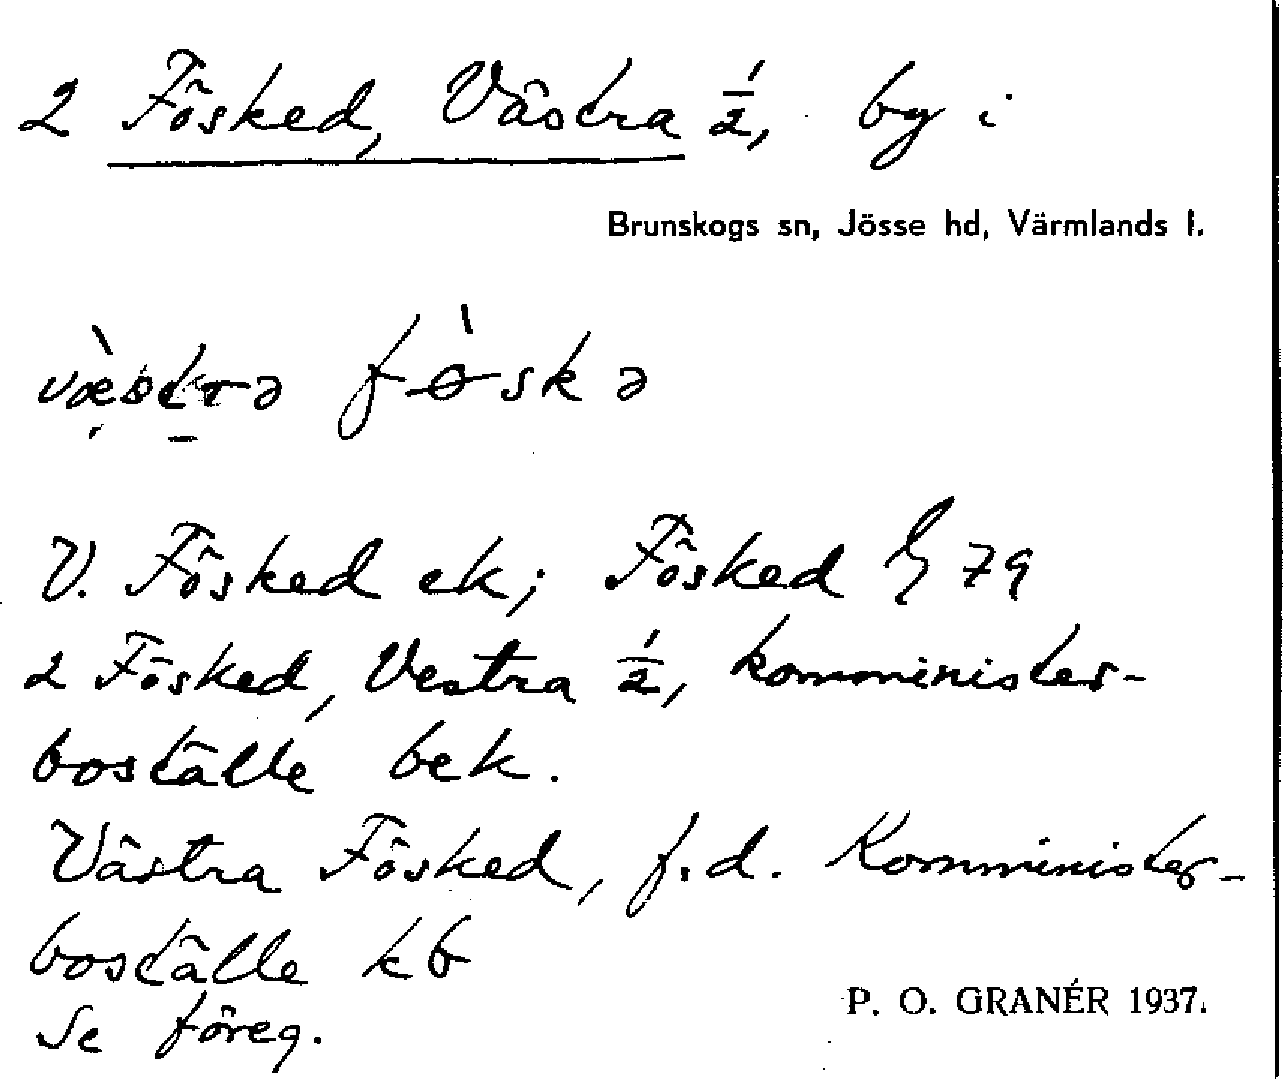 2 Fösked, Västra 1/2, by i
Brunskogs sn, Jösse hd, Värmlands l.
væstrə føskə
V. Fösked ek; Fösked G 79
2 Fösked, Vestra 1/2, komminister-
boställe bek.
Västra Fösked, f.d. Komminister-
boställe kb
Se föreg.
P. O. GRANÉR 1937.